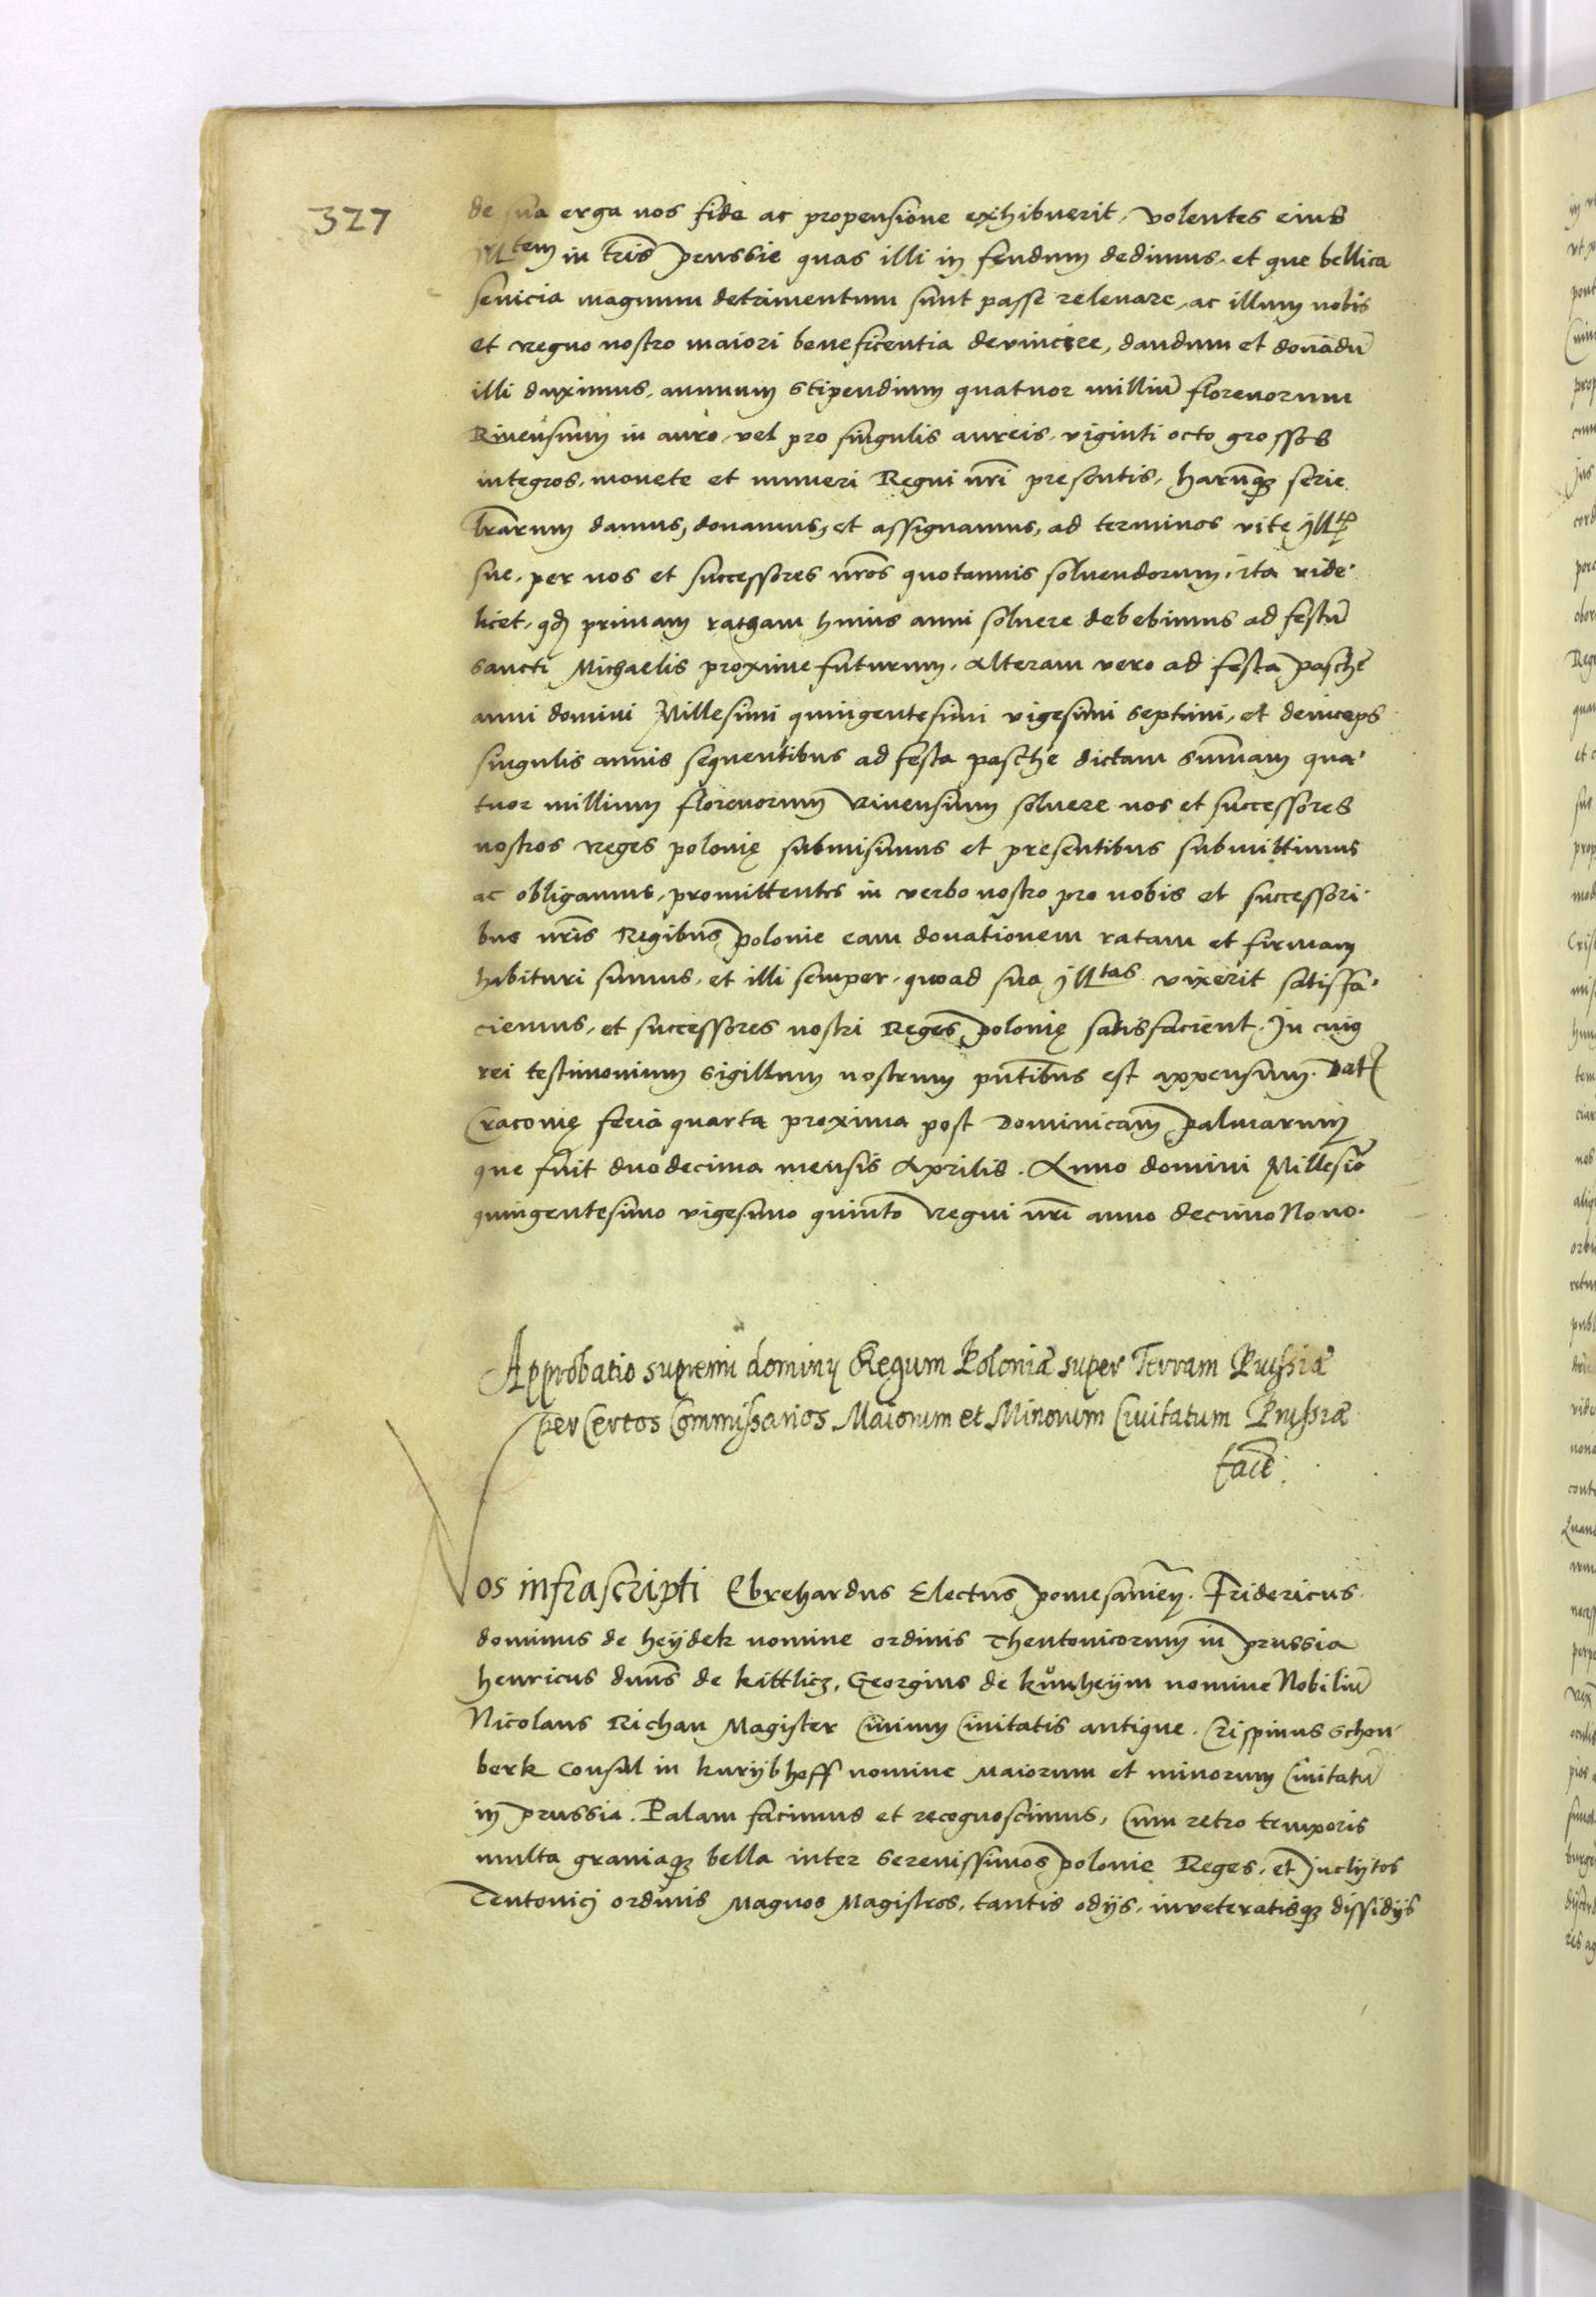 327
de sua erga nos fide ac propensione exhibuerit, volentes eius
Illtem in tr̃is prussie quas illi in feudum dedimus, et que bellica
sevicia magnum detrimentum sunt passe relevare, ac illum nobis
et regno nostro maiori beneficentia devincire, dandum et donãdũ
illi duximus, annuum stipendium quatuor milliũ florenorum
Rinensium in auro, vel pro singulis aureis, viginti octo grossos
integros, monete et numeri Regni nr̃i presentis, harũqꝫ serie
lr̃arum damus, donamus, et assignamus, ad terminos vite Ill
sue, per nos et successores nr̃os quotannis solvendorum, ita vide-
licet, qđ primam ratham huius anni solvere debebimus ad festũ
sancti Michaelis proxime futurum, Alteram vero ad festa pasche
anni domini Millesimi quingentesimi vigesimi septimi, et deinceps
singulis annis sequentibus ad festa pasche dictam sum̃am qua-
tuor millium florenorum rinensium solvere nos et successores
nostros reges polonię submisimus et presentibus submittimus
ac obligamus, promittentes in verbo nostro pro nobis et successori-
bus nr̃is Regibus polonie eam donationem ratam et firmam
habituri sumus, et illi semper, quoad sua Illtas vixerit satisfa-
ciemus, et successores nostri Reges polonię satisfacient. In cuiꝰ
rei testimonium sigillum nostrum pñtibus est appensum. Dat
Cracovię feria quarta proxima post Dominicam palmarum
que fuit duodecima mensis Aprilis. Anno domini Millesĩo
quingentesimo vigesimo quinto regni nr̃i anno decimo Nono.
Approbatio supremi dominij Regum Poloniæ super Terram Prussiæ
per Certos Commissarios Maiorum et Minorum Civitatum Prussiæ
fac̃e
Nos infrascripti Ebrehardus Electus pomesanieñ. Fridericus
dominus de heÿdek nomine ordinis Theutonicorum in prussia
henricus dñus de kittlicz, Georgius de kůnheÿm nomine Nobiliũ
Nicolaus Richau Magister Civium Civitatis antique. Crispinus schon-
berk Consul in kurÿbhoff nomine Maiorum et minorum Civitatũ
in prussia. Palam facimus et recognoscimus, Cum retro temporis
multa graviaqꝫ bella inter serenissimos polonie Reges, et Inclÿtos
Teutonicj ordinis Magnos Magistros, tantis odÿs, inveteratisqꝫ dissidÿs